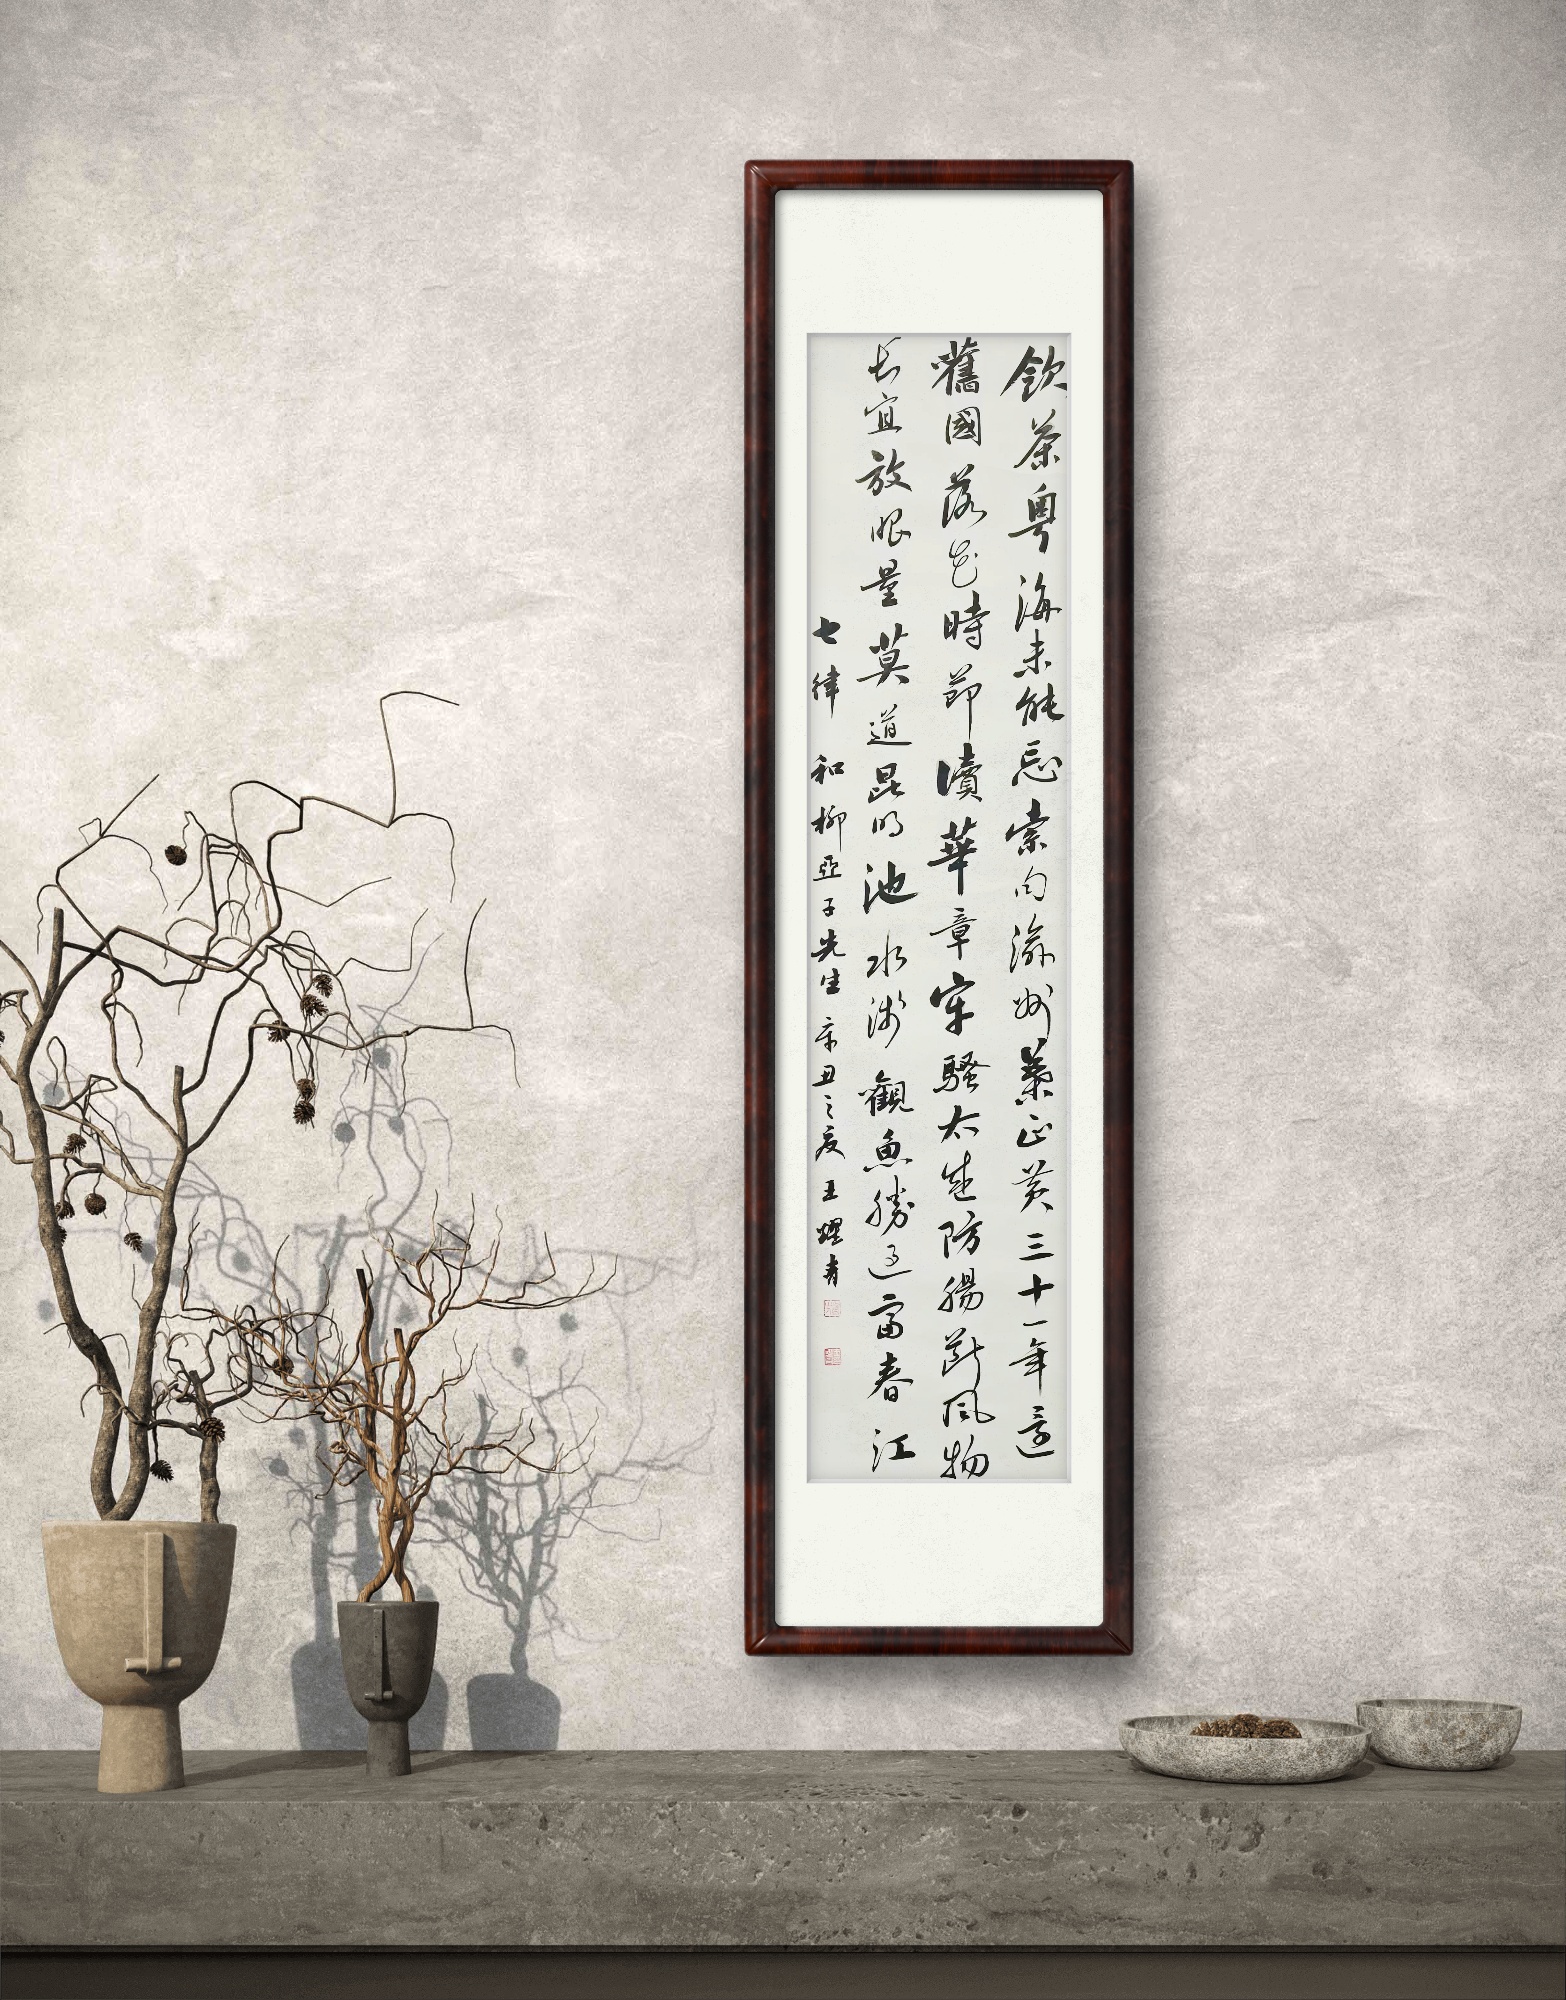 飲茶粵海未能忘索句渝州葉正黃三十一年還
舊國落花時節讀華章牢騷太盛防腸斷風物
長宜放眼量莫道昆明池水淺觀魚勝過富春江
七律 和柳亞子先生 辛丑之夏 王耀青